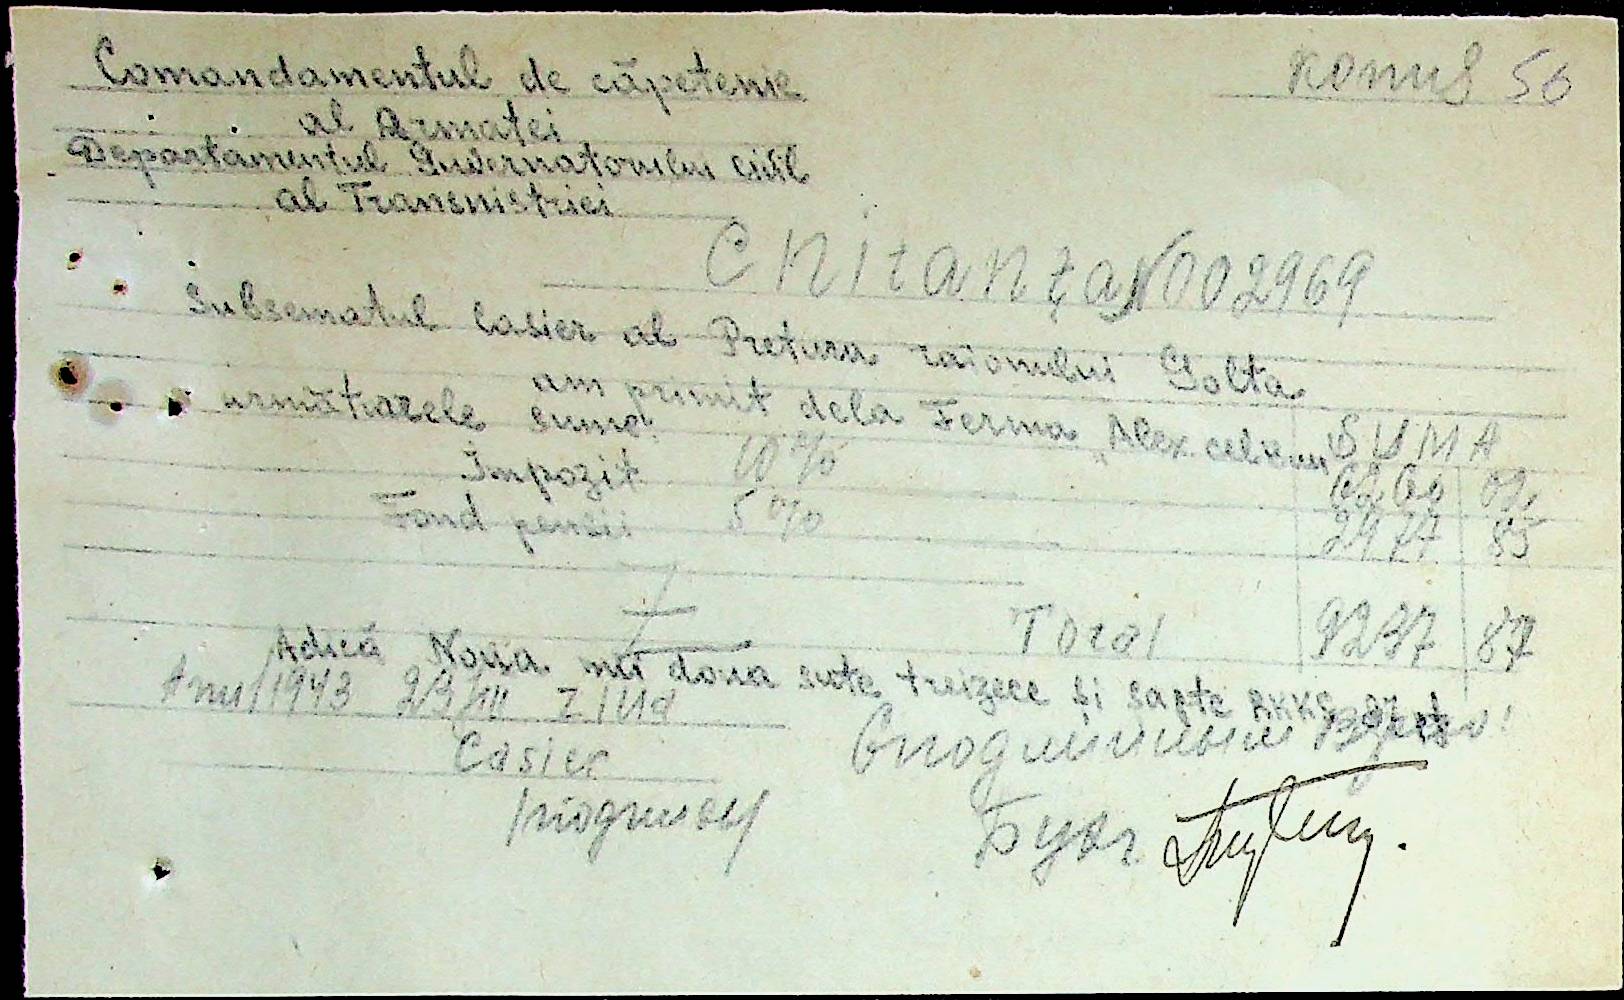 копия 56
Comandamentul de căpetenie
al Armatei
Departamentul Guvernatorului Civil
al Transnistriei
Chitanța N002969
Subsematul Casier al Pretura raionului Golta
am primit dela Ferma „Alex. cel
următoarele sume:
SUMA
Impozit 10% 6260 02
Fond pensii 5% 2977 85
Total 9237 87
Adică Noua mii doua sute treizece și șapte RKKS 87
Anul 1943 29/III Ziua
С подлинным верно:
Casier
/подпись/
Бухг